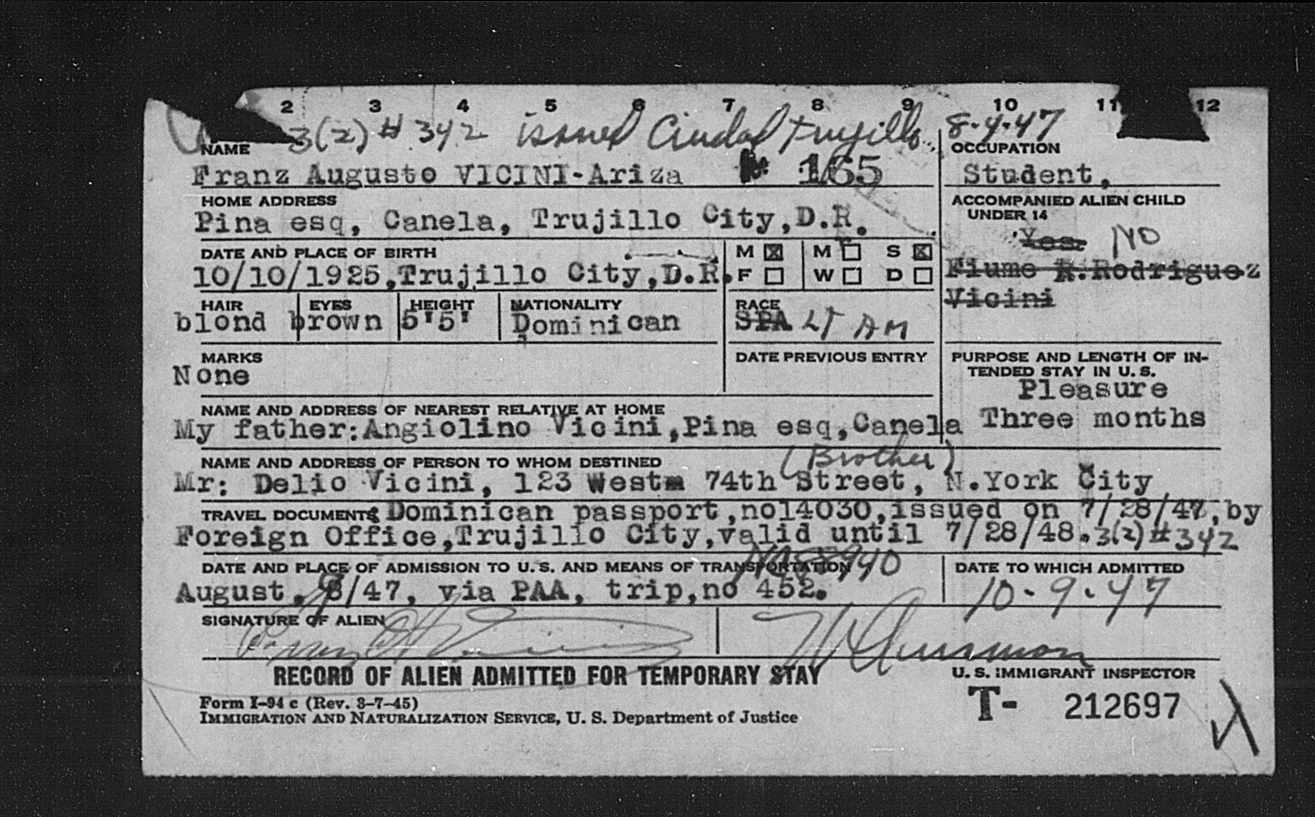 2 3 4 5 6 7 8 9 10 11 12
3(2) # 342 issued Ciudad Trujillo 8-4-47
NAME
Franz Augusto VICINI-Ariza 165
OCCUPATION
Student,
HOME ADDRESS
Pina esq, Canela, Trujillo City,D.R.
ACCOMPANIED ALIEN CHILD
UNDER 14
Yes. NO
Fiume R.Rodriguez
Vicini
DATE AND PLACE OF BIRTH
10/10/1925,Trujillo City,D.R.
M ☒ M ☐ S ☒
F ☐ W ☐ D ☐
HAIR EYES HEIGHT NATIONALITY RACE
blond brown 5'5' Dominican SPA LT AM
MARKS
None
DATE PREVIOUS ENTRY
PURPOSE AND LENGTH OF IN-
TENDED STAY IN U. S.
Pleasure
Three months
NAME AND ADDRESS OF NEAREST RELATIVE AT HOME
My father:Angiolino Vicini,Pina esq,Canela
NAME AND ADDRESS OF PERSON TO WHOM DESTINED (Brother)
Mr: Delio Vicini, 123 West 74th Street, N.York City
TRAVEL DOCUMENTS Dominican passport,no14030,issued on 7/28/47,by
Foreign Office,Trujillo City,valid until 7/28/48. 3(2) # 342
DATE AND PLACE OF ADMISSION TO U. S. AND MEANS OF TRANSPORTATION
August, 9/47, via PAA, trip,no 452.
DATE TO WHICH ADMITTED
10-9-47
SIGNATURE OF ALIEN
RECORD OF ALIEN ADMITTED FOR TEMPORARY STAY
U. S. IMMIGRANT INSPECTOR
Form I-94 c (Rev. 3-7-45)
IMMIGRATION AND NATURALIZATION SERVICE, U. S. Department of Justice
T- 212697